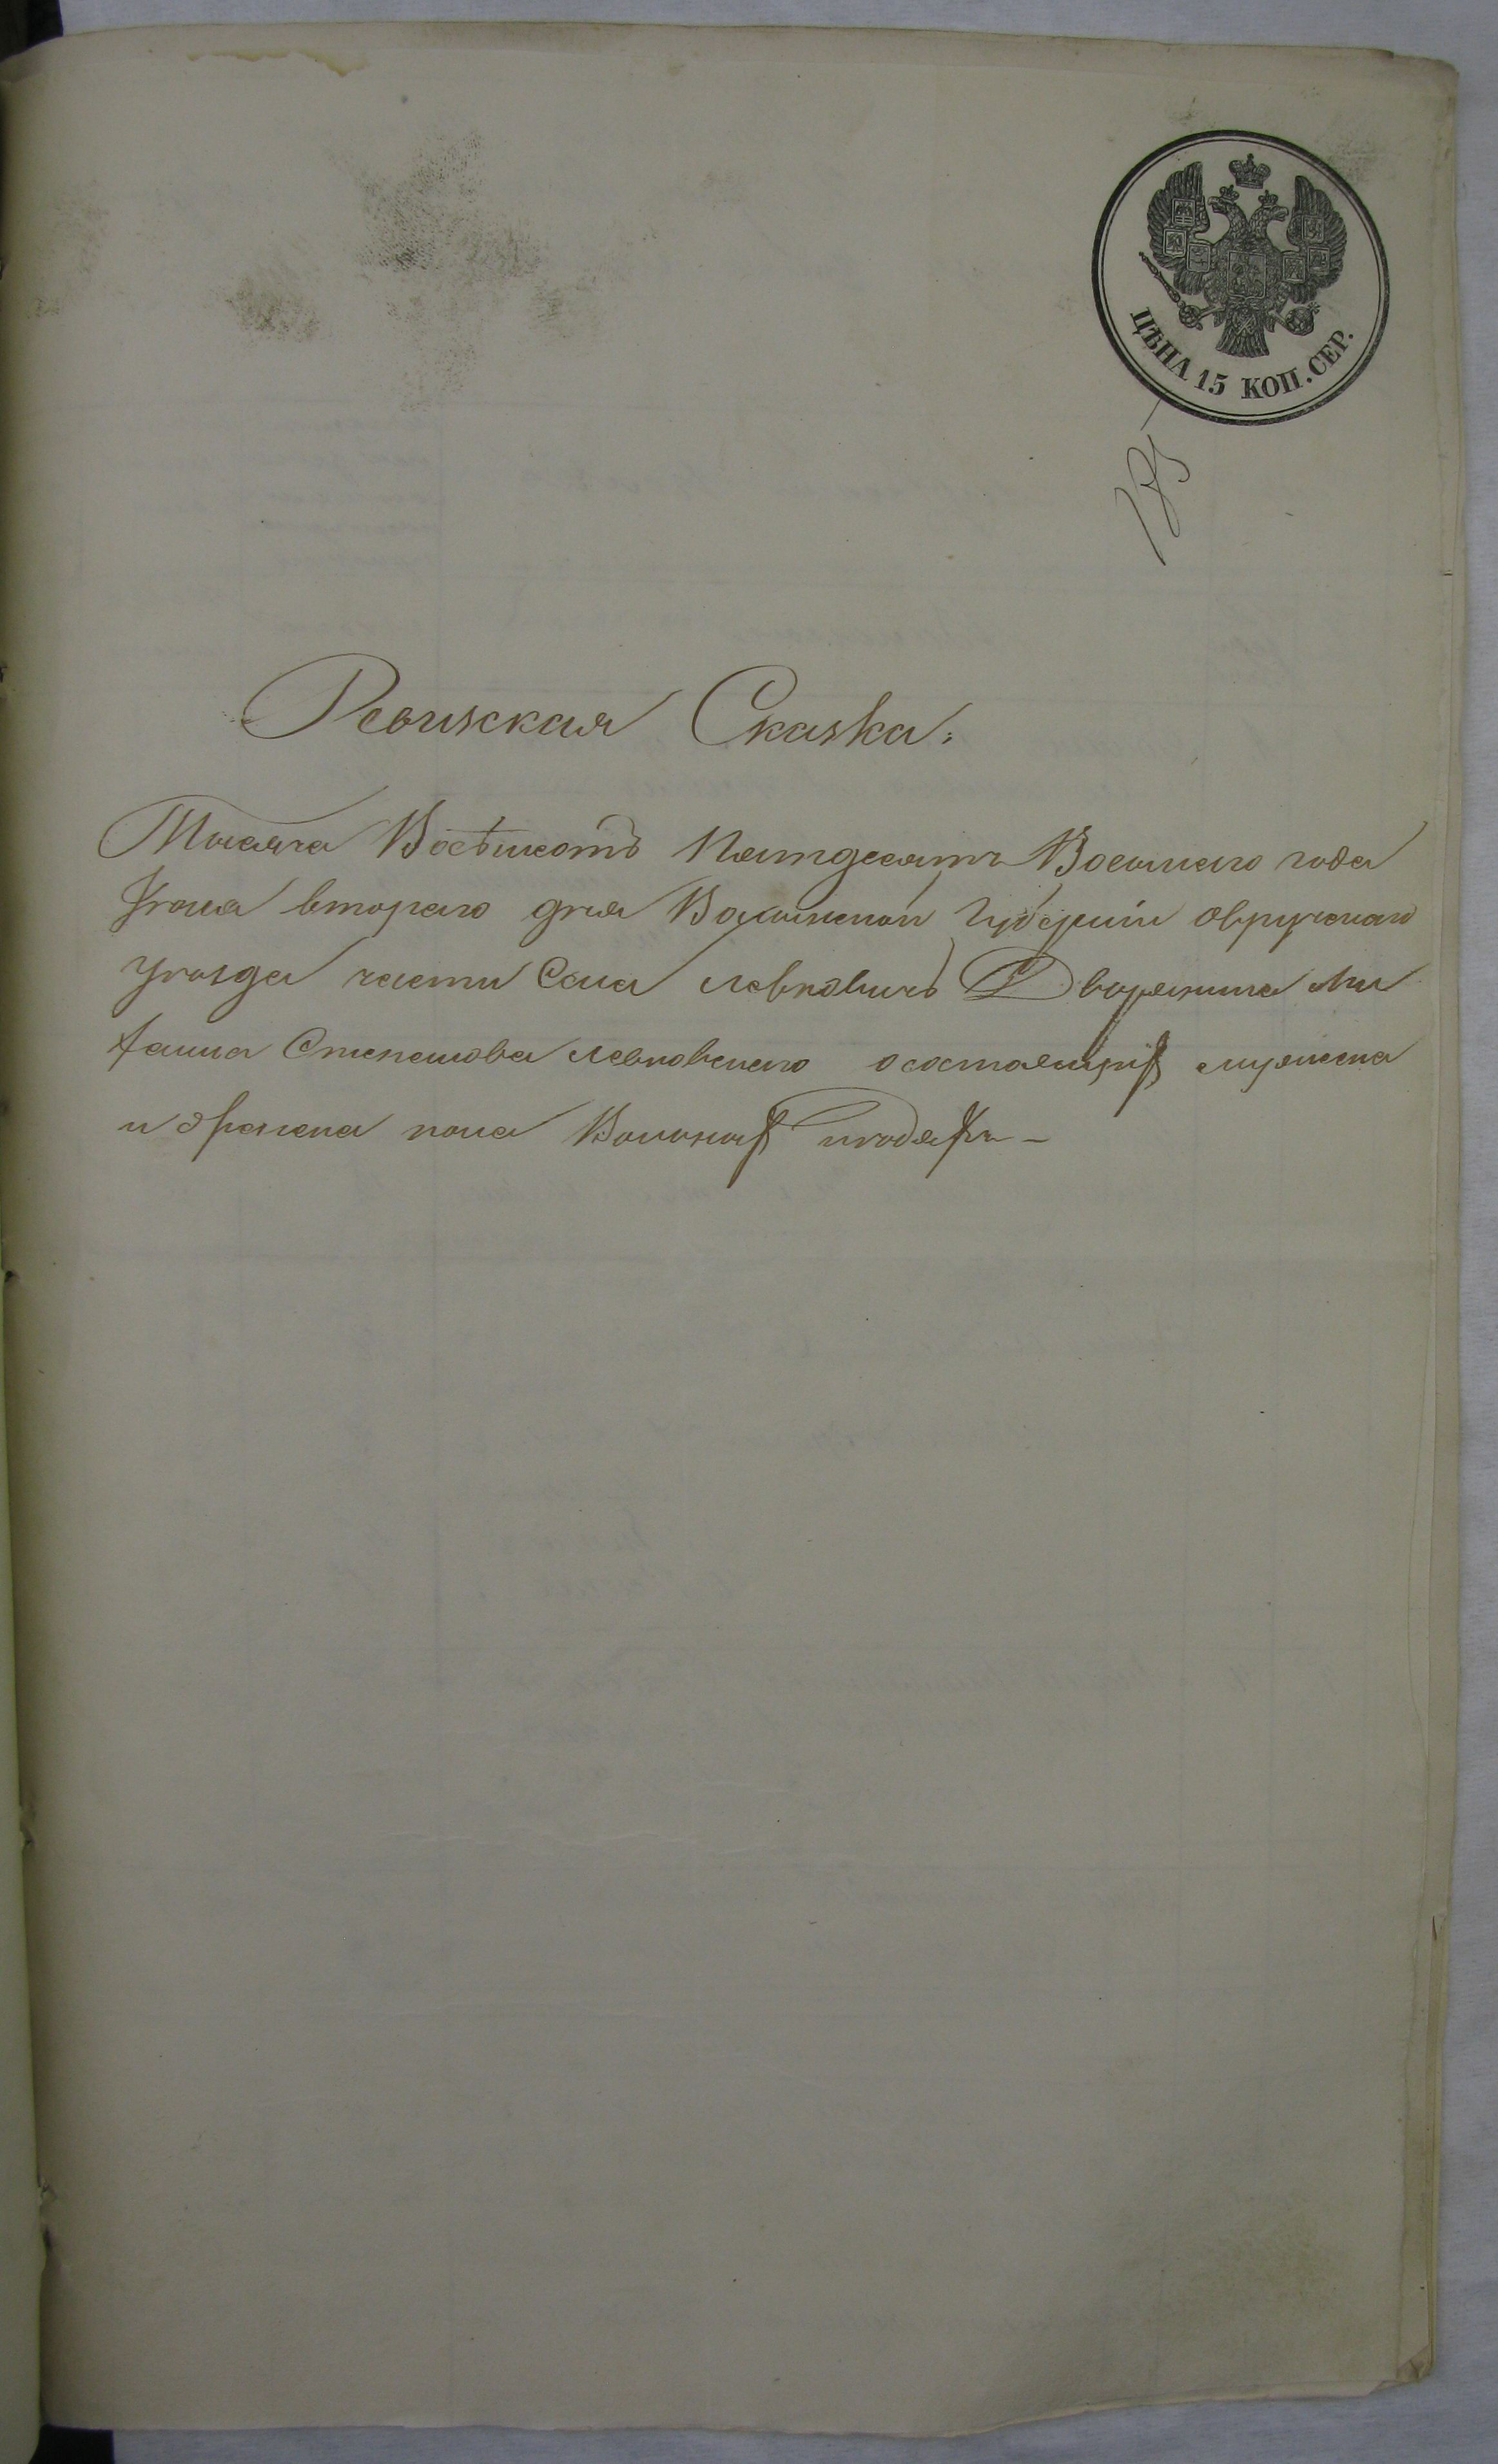 ЦѢНА 15 КОП. СЕР.
Ревизская Сказка:
Тысяча Восѣмсотъ Пятдесятъ Восмаго года
Іюня втораго дня Волынской Губерніи овручскаго
уѣзда части Села Левковичъ Дворянина Ми
Степанова Левковскаго о состоящихъ мужеска
и женска пола Вольныхъ людяхъ –